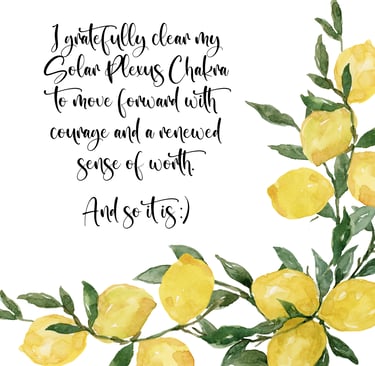 I gratefully clear my
Solar Plexus Chakra
to move forward with
courage and a renewed
sense of worth.
And so it is :)